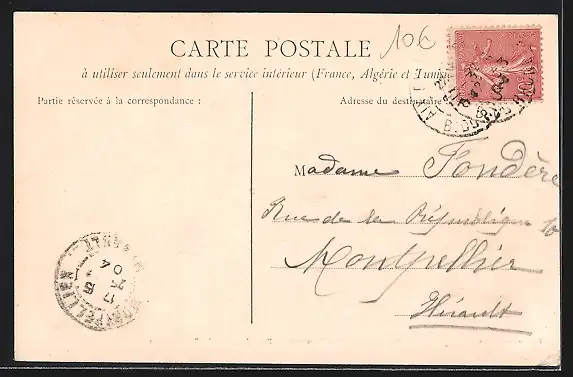 10€
CARTE POSTALE
à utiliser seulement dans le service intérieur (France, Algérie et Tunisie
Partie réservée à la correspondance :
Adresse du destinataire
Madame Fondère
Rue de la République 10
Montpellier
Hérault
MONTPELLIER
HERAULT
17
15
04